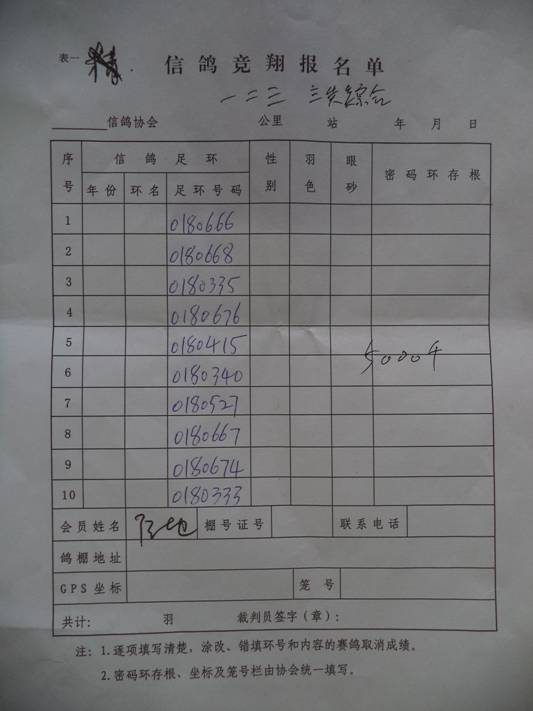 表一
信鸽竞翔报名单
一二三 三关综合
信鸽协会 公里 站 年 月 日
序号 信鸽足环 性别 羽色 眼砂 密码环存根
年份 环名 足环号码
1 0180666
2 0180668
3 0180335
4 0180676
5 0180415
5000千
6 0180340
7 0180527
8 0180667
9 0180674
10 0180333
会员姓名 棚号证号 联系电话
鸽棚地址
GPS坐标 笼号
共计: 羽 裁判员签字(章):
注: 1.逐项填写清楚,涂改、错填环号和内容的赛鸽取消成绩。
2.密码环存根、坐标及笼号栏由协会统一填写。